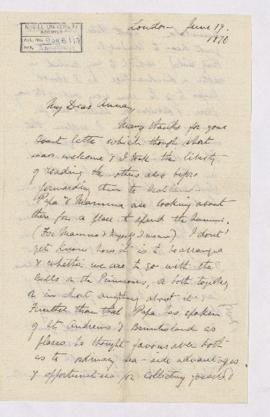 McGILL UNIVERSITY
ARCHIVES
ACC. NO.
REF.
London June 19.
1870
My Dear Annan,
Many thanks for your
last letter which though short
was welcome & I took the liberty
of reading the others also before
forwarding them to
Papa & Mamma are looking about
them for a place to spend the summer.
(For Mamma & myself I mean) I don't
yet know how it is to be arranged
& whether we are to go with the
Bells or the Primroses, or both together
or in short anything about it.
Further than that Papa has spoken
of St. Andrews & as
places he thought favourable both
as to ordinary sea-side advantages
& opportunities for collecting